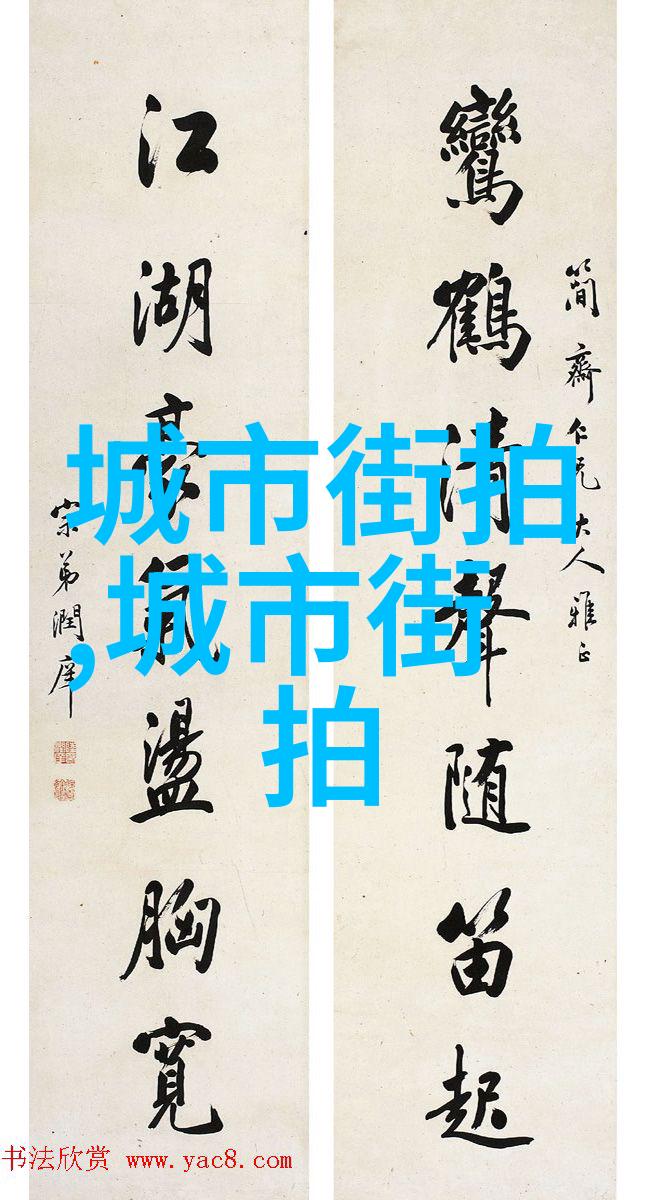 簡齋仁兄大人雅正
鸞鶴清聲随笛起
江湖豪氣盪胸寬
宗弟潤庠
城市街拍
,城市街
拍
书法欣赏 www.yac8.com